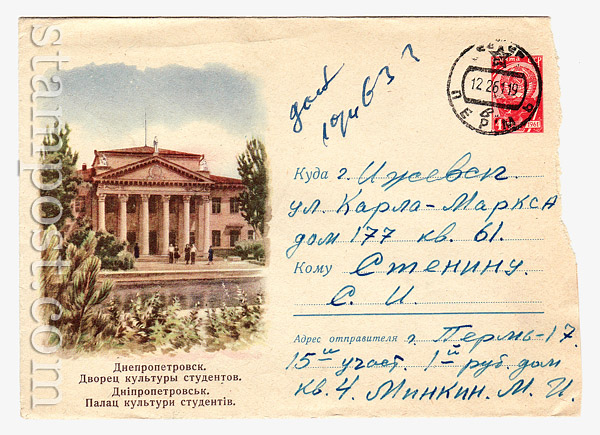 ПОЧТА СССР
1961
ПЕРМЬ
12 2 61 19
Куда г. Ижевск
ул. Карла-Маркса
дом 177 кв. 61.
Кому Стенину.
С. И.
Адрес отправителя г. Пермь-17.
15й участ. 1й руб. дом
кв. 4. Минкин. М. И.
Днепропетровск.
Дворец культуры студентов.
Дніпропетровськ.
Палац культури студентів.
stampost.com